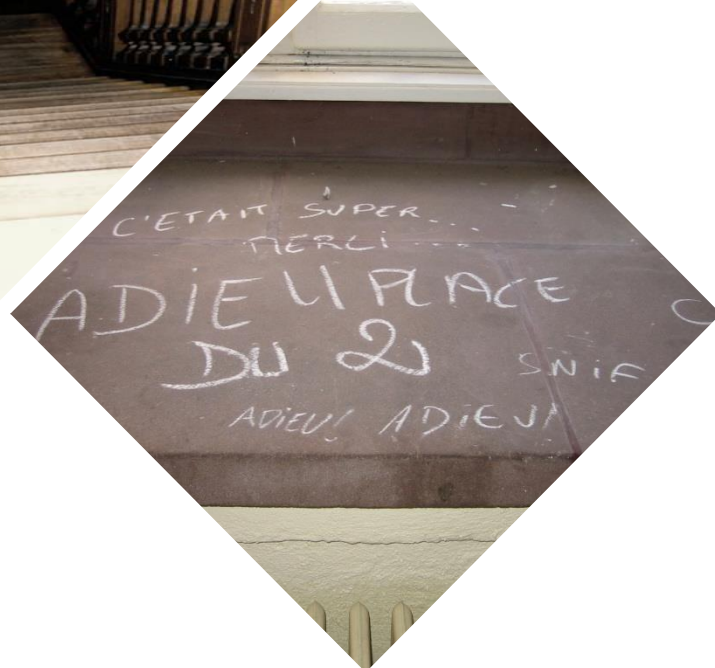 C'ETAIT SUPER...
MERCI....
ADIEU PLACE
DU 2
SNIF
ADIEU! ADIEU!